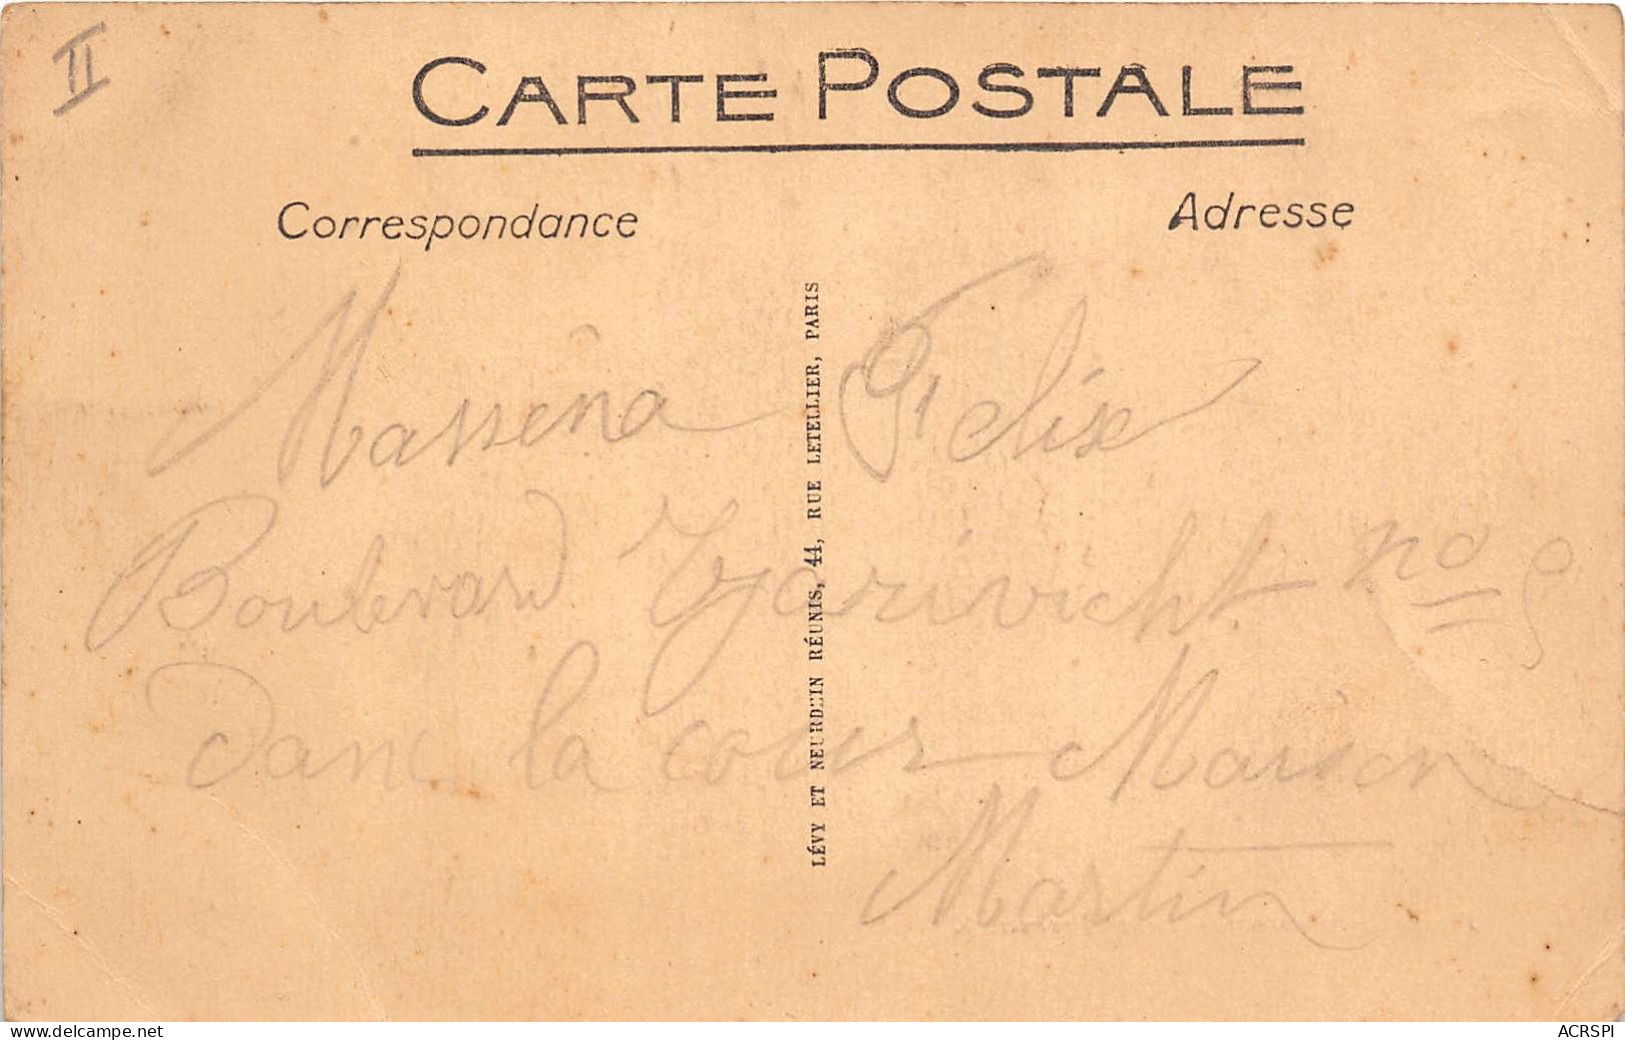 II
CARTE POSTALE
Correspondance
Adresse
Massena Felix
Boulevard no 9
Dans la cour Maison
Martin
LÉVY ET NEURDEIN RÉUNIS, 44, RUE LETELLIER, PARIS
www.delcampe.net
ACRSPI